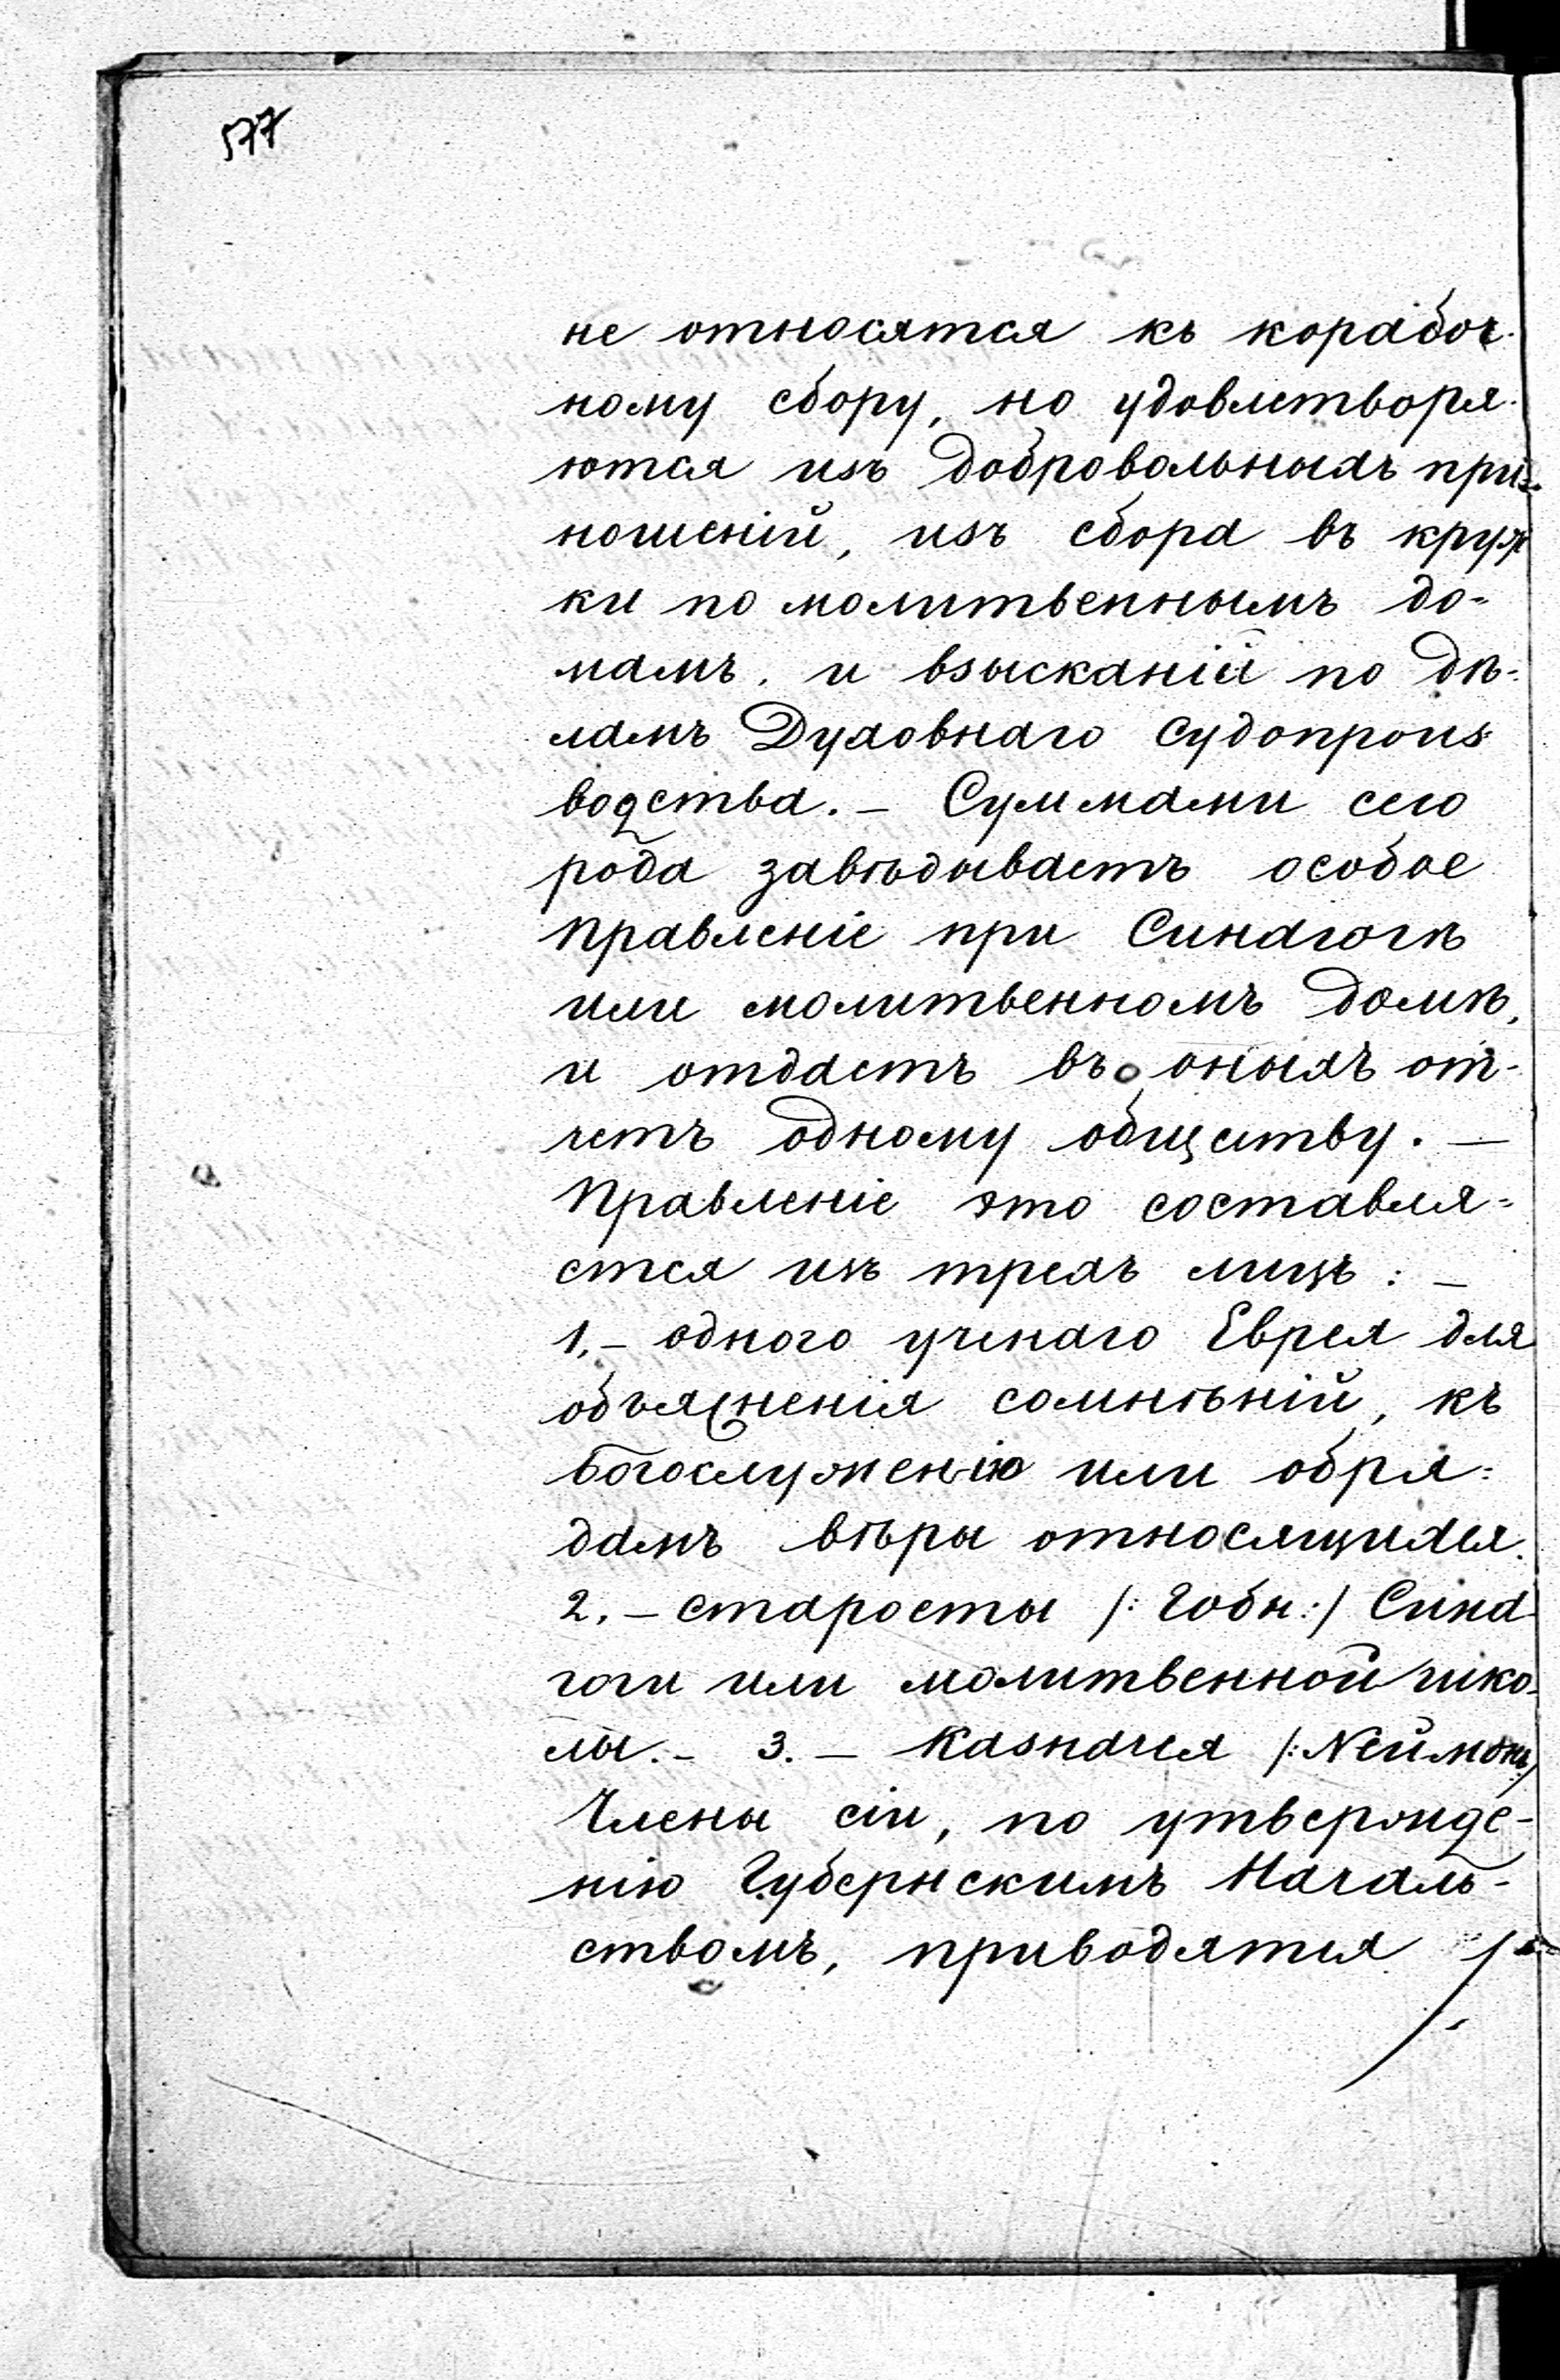 577
не относятся къ корабоч-
ному сбору, но удовлетворя-
ются изъ добровольныхъ при-
ношеній, изъ сбора въ круж
ки по молитвеннымъ до-
мамъ, и взысканій по дѣ-
ламъ Духовнаго судопроиз
водства. – Суммами сего
рода завѣдываетъ особое
Правленіе при Синагогѣ
или молитвенномъ домѣ,
и отдаетъ въ оныхъ от-
четъ одному обществу. —
Правленіе это составля-
ется изъ трехъ лицъ: –
1, – одного ученаго Еврея для
объясненія сомнѣній, къ
богослуженію или обря-
дамъ вѣры относящихся.
2. – старосты /: Гобн :/ Сина
гоги или молитвенной шко-
лы. – 3. – Казначея /: Неймонъ :/
Члены сіи, по утвержде-
нію Губернскимъ Началь-
ствомъ, приводятся